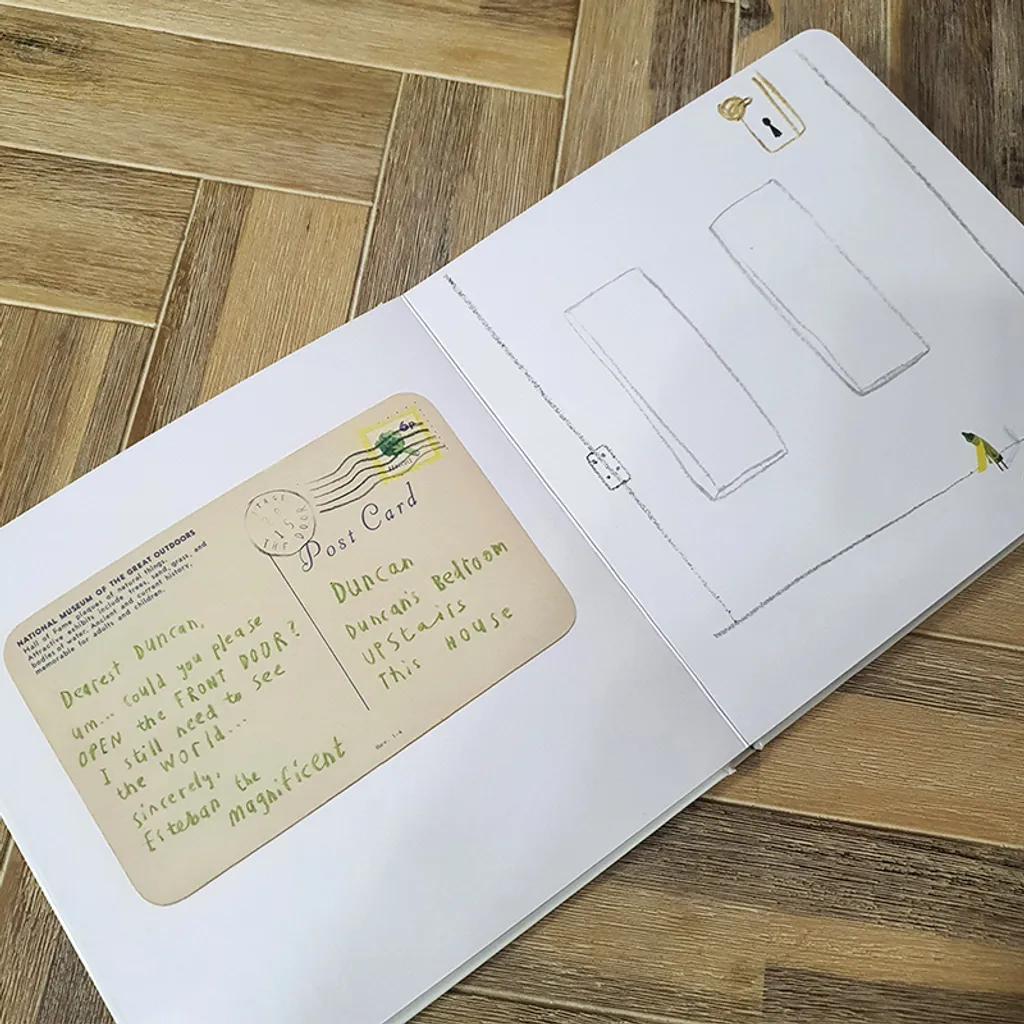 NATIONAL MUSEUM OF THE GREAT OUTDOORS
Hall of Fame plaques of natural things.
Attractive exhibits include trees, sand, grass, and
bodies of water. Ancient and current history,
memorable for adults and children.
Dearest Duncan,
um... could you please
OPEN the FRONT DOOR?
I still need to see
the WORLD...
sincerely,
Esteban the
magnificent
THE DOOR
15
6p
Post Card
Duncan
Duncan's Bedroom
UPStairs
This HOUSE